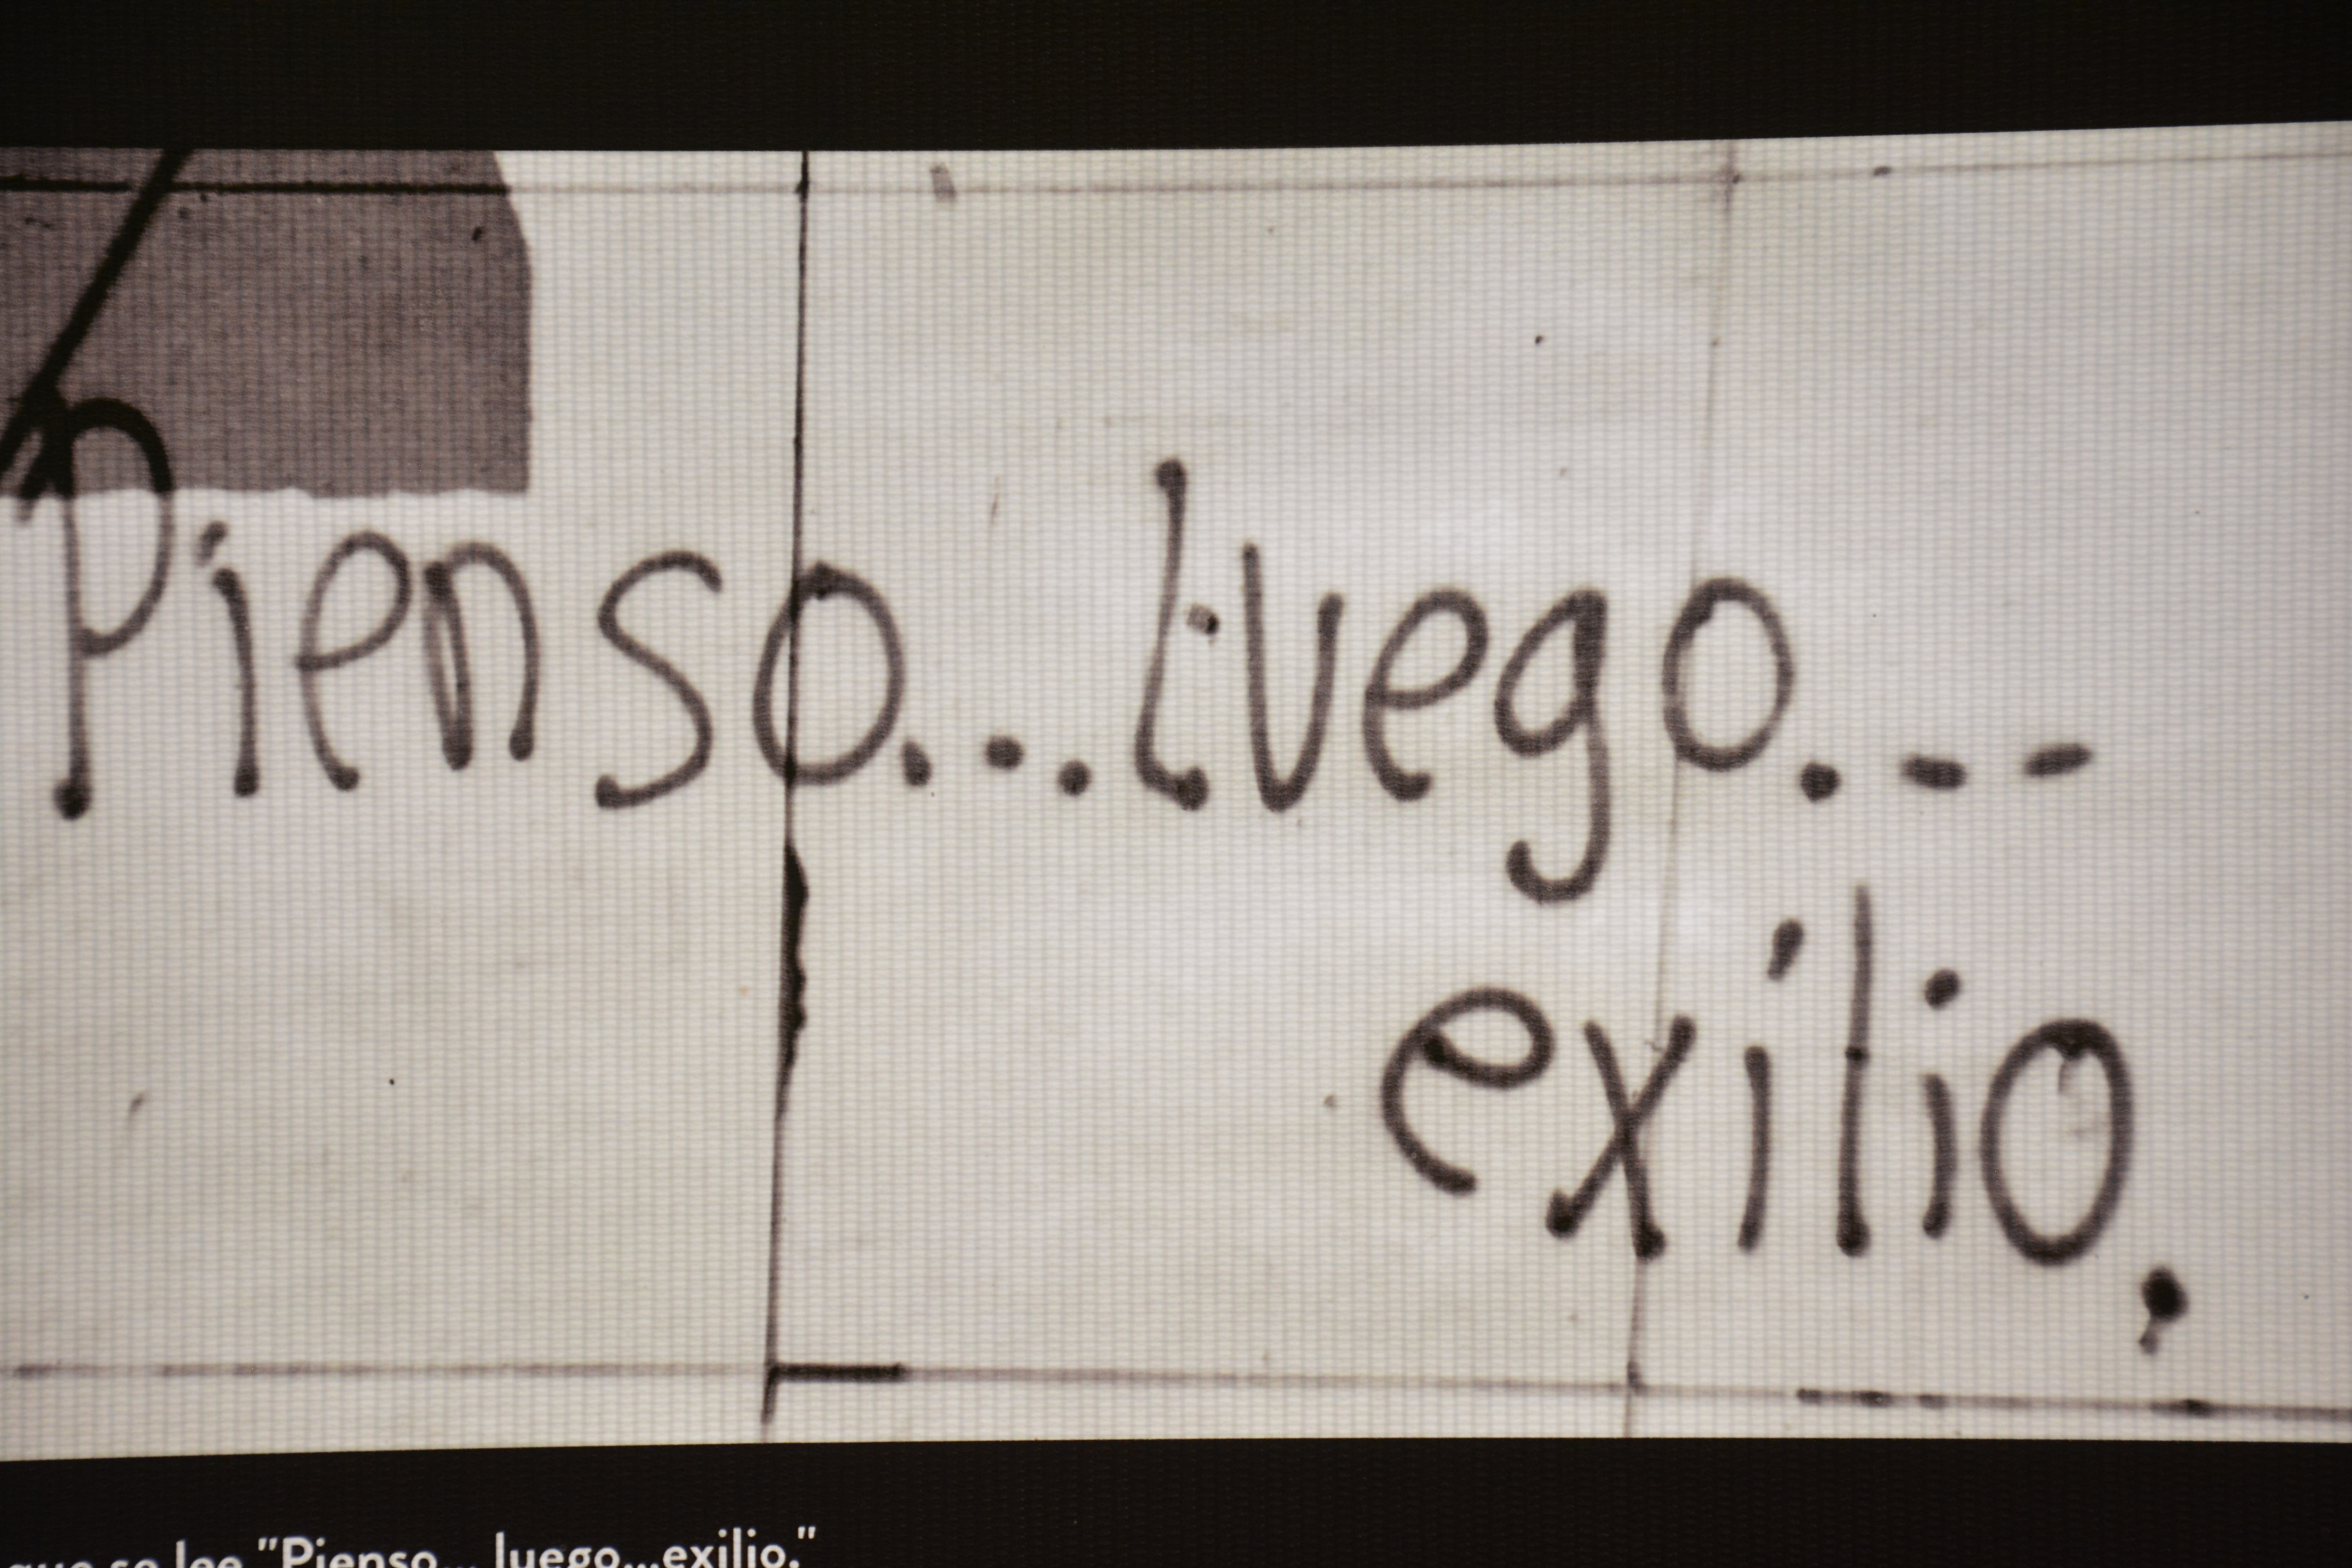 Pienso...Luego...
exílio.
que se lee "Pienso... luego...exilio."